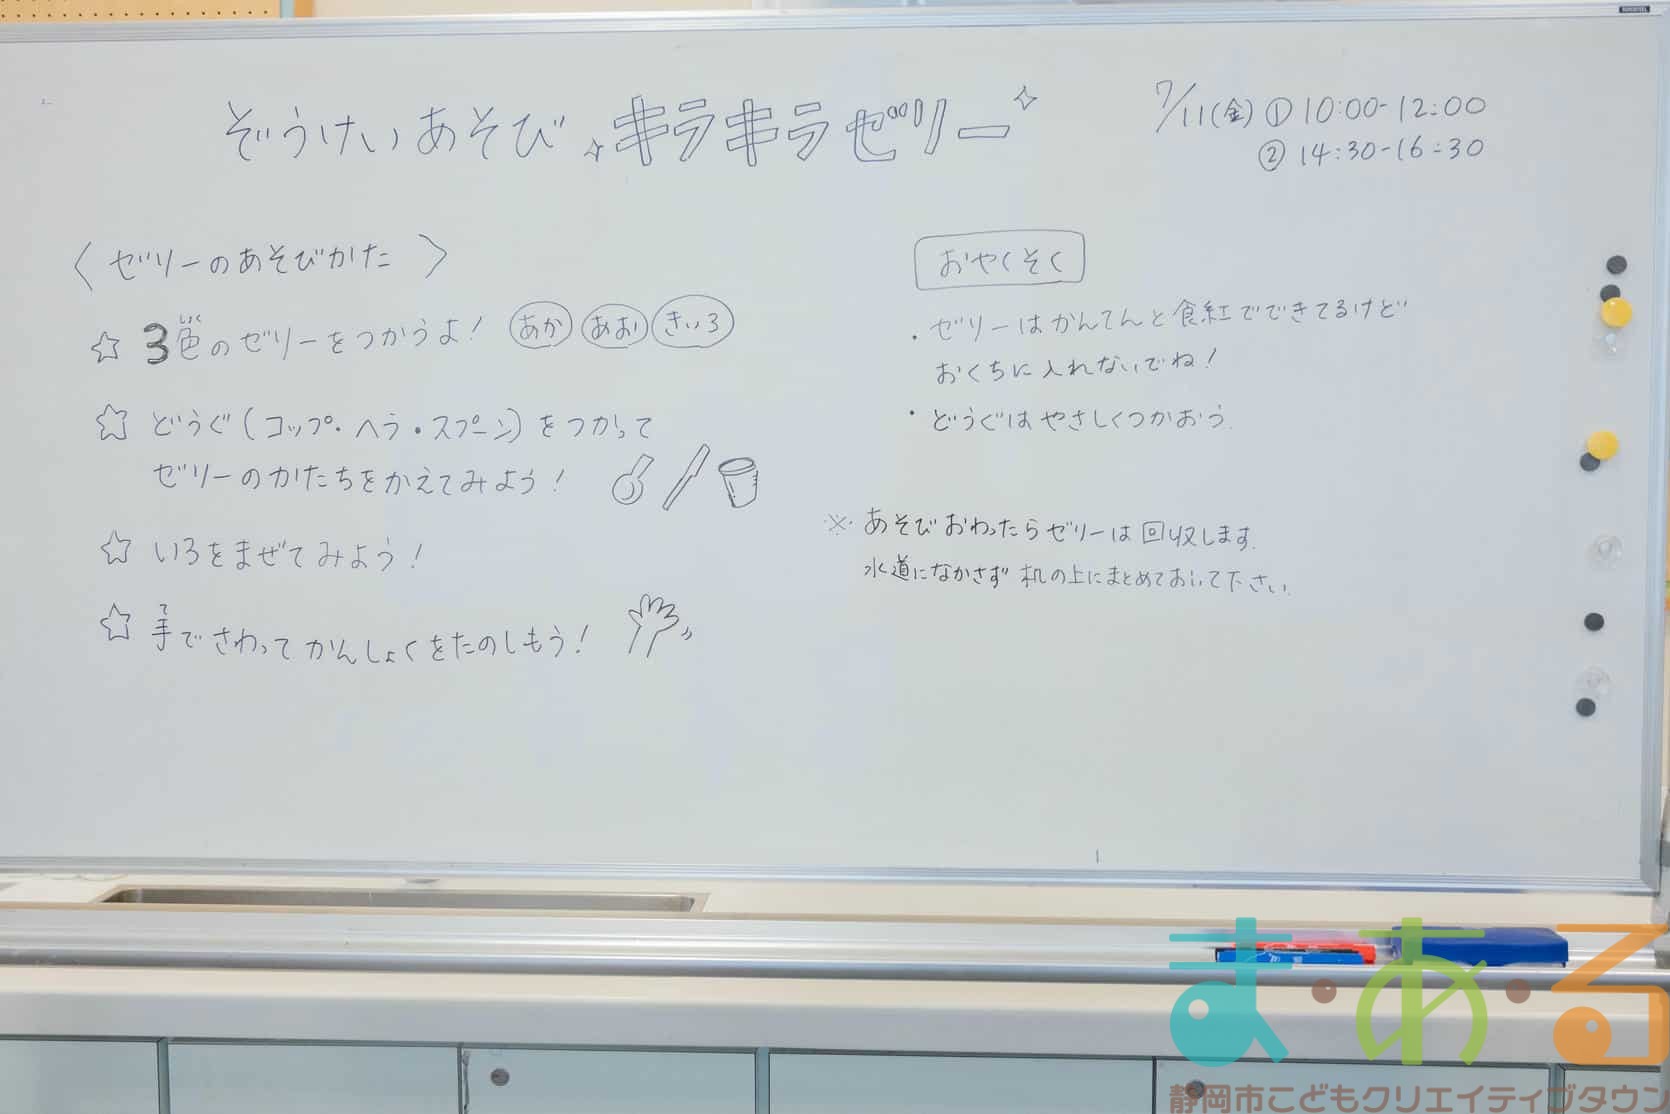 ぞうけいあそび キラキラゼリー
7/11(金) ① 10:00-12:00
② 14:30-16:30
〈ゼリーのあそびかた〉
☆ 3色のゼリーをつかうよ! あか あお きいろ
しょく
☆ どうぐ(コップ・ヘラ・スプーン)をつかって
ゼリーのかたちをかえてみよう!
☆ いろをまぜてみよう!
て
☆ 手でさわってかんしょくをたのしもう!
おやくそく
・ゼリーはかんてんと食紅でできてるけど
おくちに入れないでね!
・どうぐはやさしくつかおう.
※あそびおわったらゼリーは回収します.
水道になかさず机の上にまとめておいて下さい.
ま・あ・る
静岡市こどもクリエイティブタウン